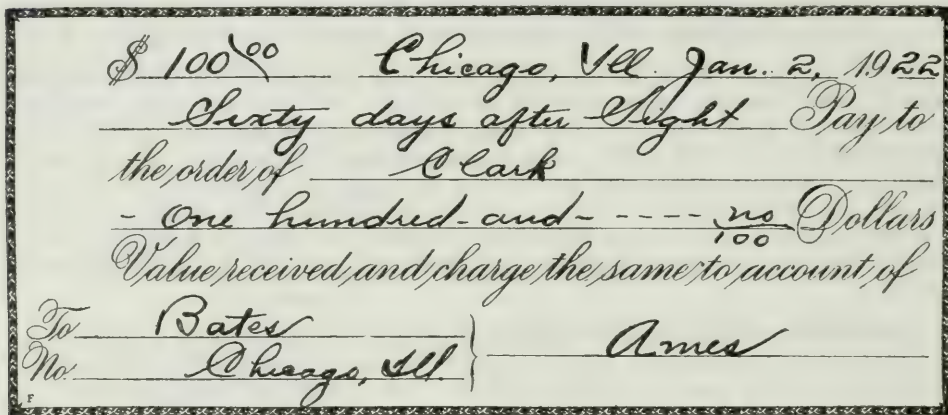 $ 100 00 Chicago, Ill. Jan. 2, 1922
Sixty days after Sight Pay to
the order of Clark
- One hundred and - - - - - no/100 Dollars
Value received and charge the same to account of
To Bates
No. Chicago, Ill. Ames
F